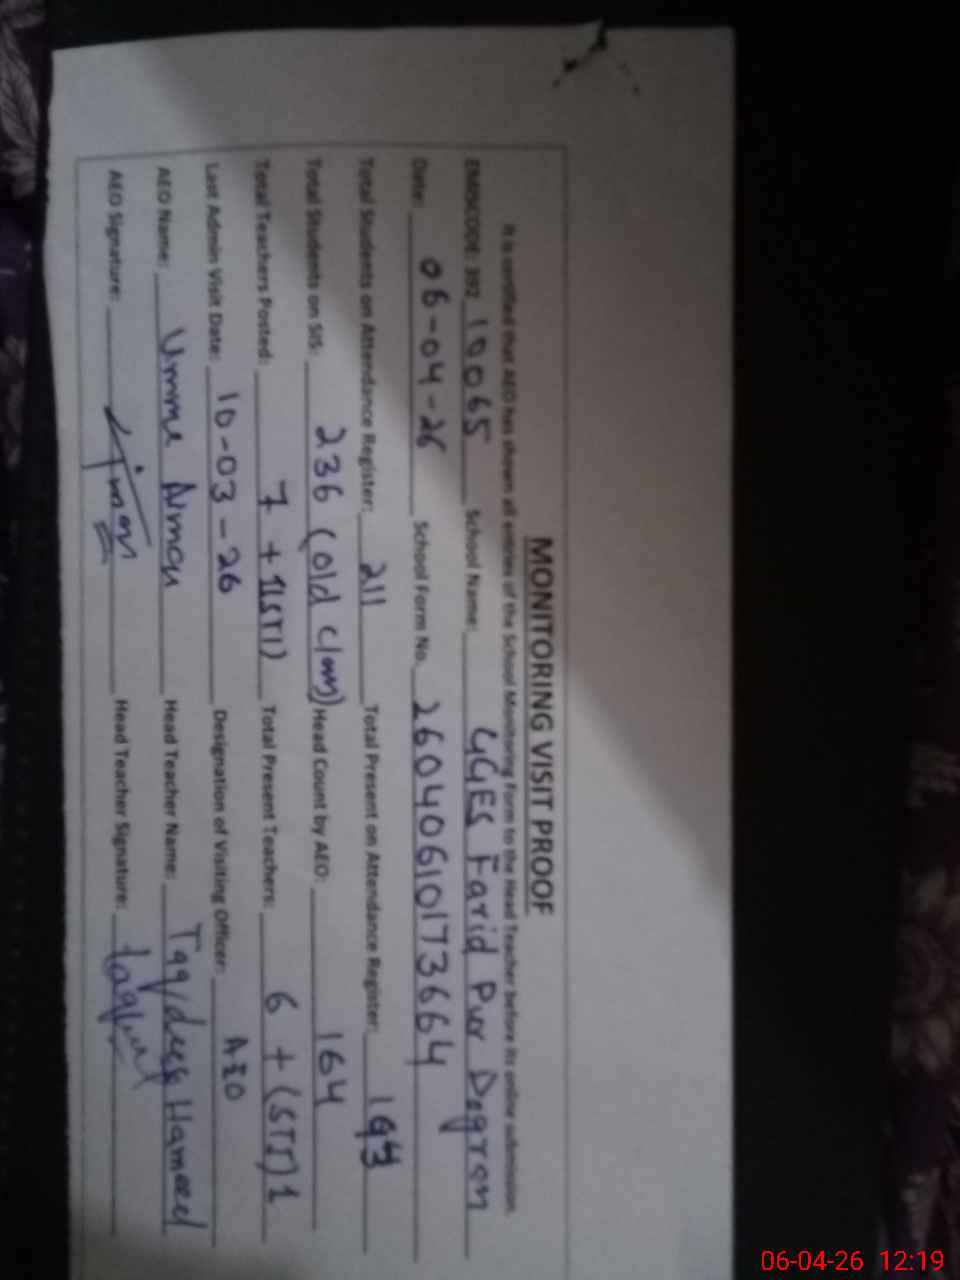 MONITORING VISIT PROOF
It is certified that AEO has shown all entries of the School Monitoring Form to the Head Teacher before its online submission
EMISCODE: 392 10065 School Name: GGES Farid Pur Dogran
Date: 06-04-26 School Form No. 2604061017 3664
Total Students on Attendance Register: 211 Total Present on Attendance Register:
Total Students on SIS: 236 (old class) Head Count by AEO: 164
Total Teachers Posted: 7 + 1(STI) Total Present Teachers: 6 + (STI) 1
Last Admin Visit Date: 10-03-26 Designation of Visiting Officer: AEO
AEO Name: Umme Aiman Head Teacher Name: Hameed
AEO Signature: Head Teacher Signature:
06-04-26 12:19